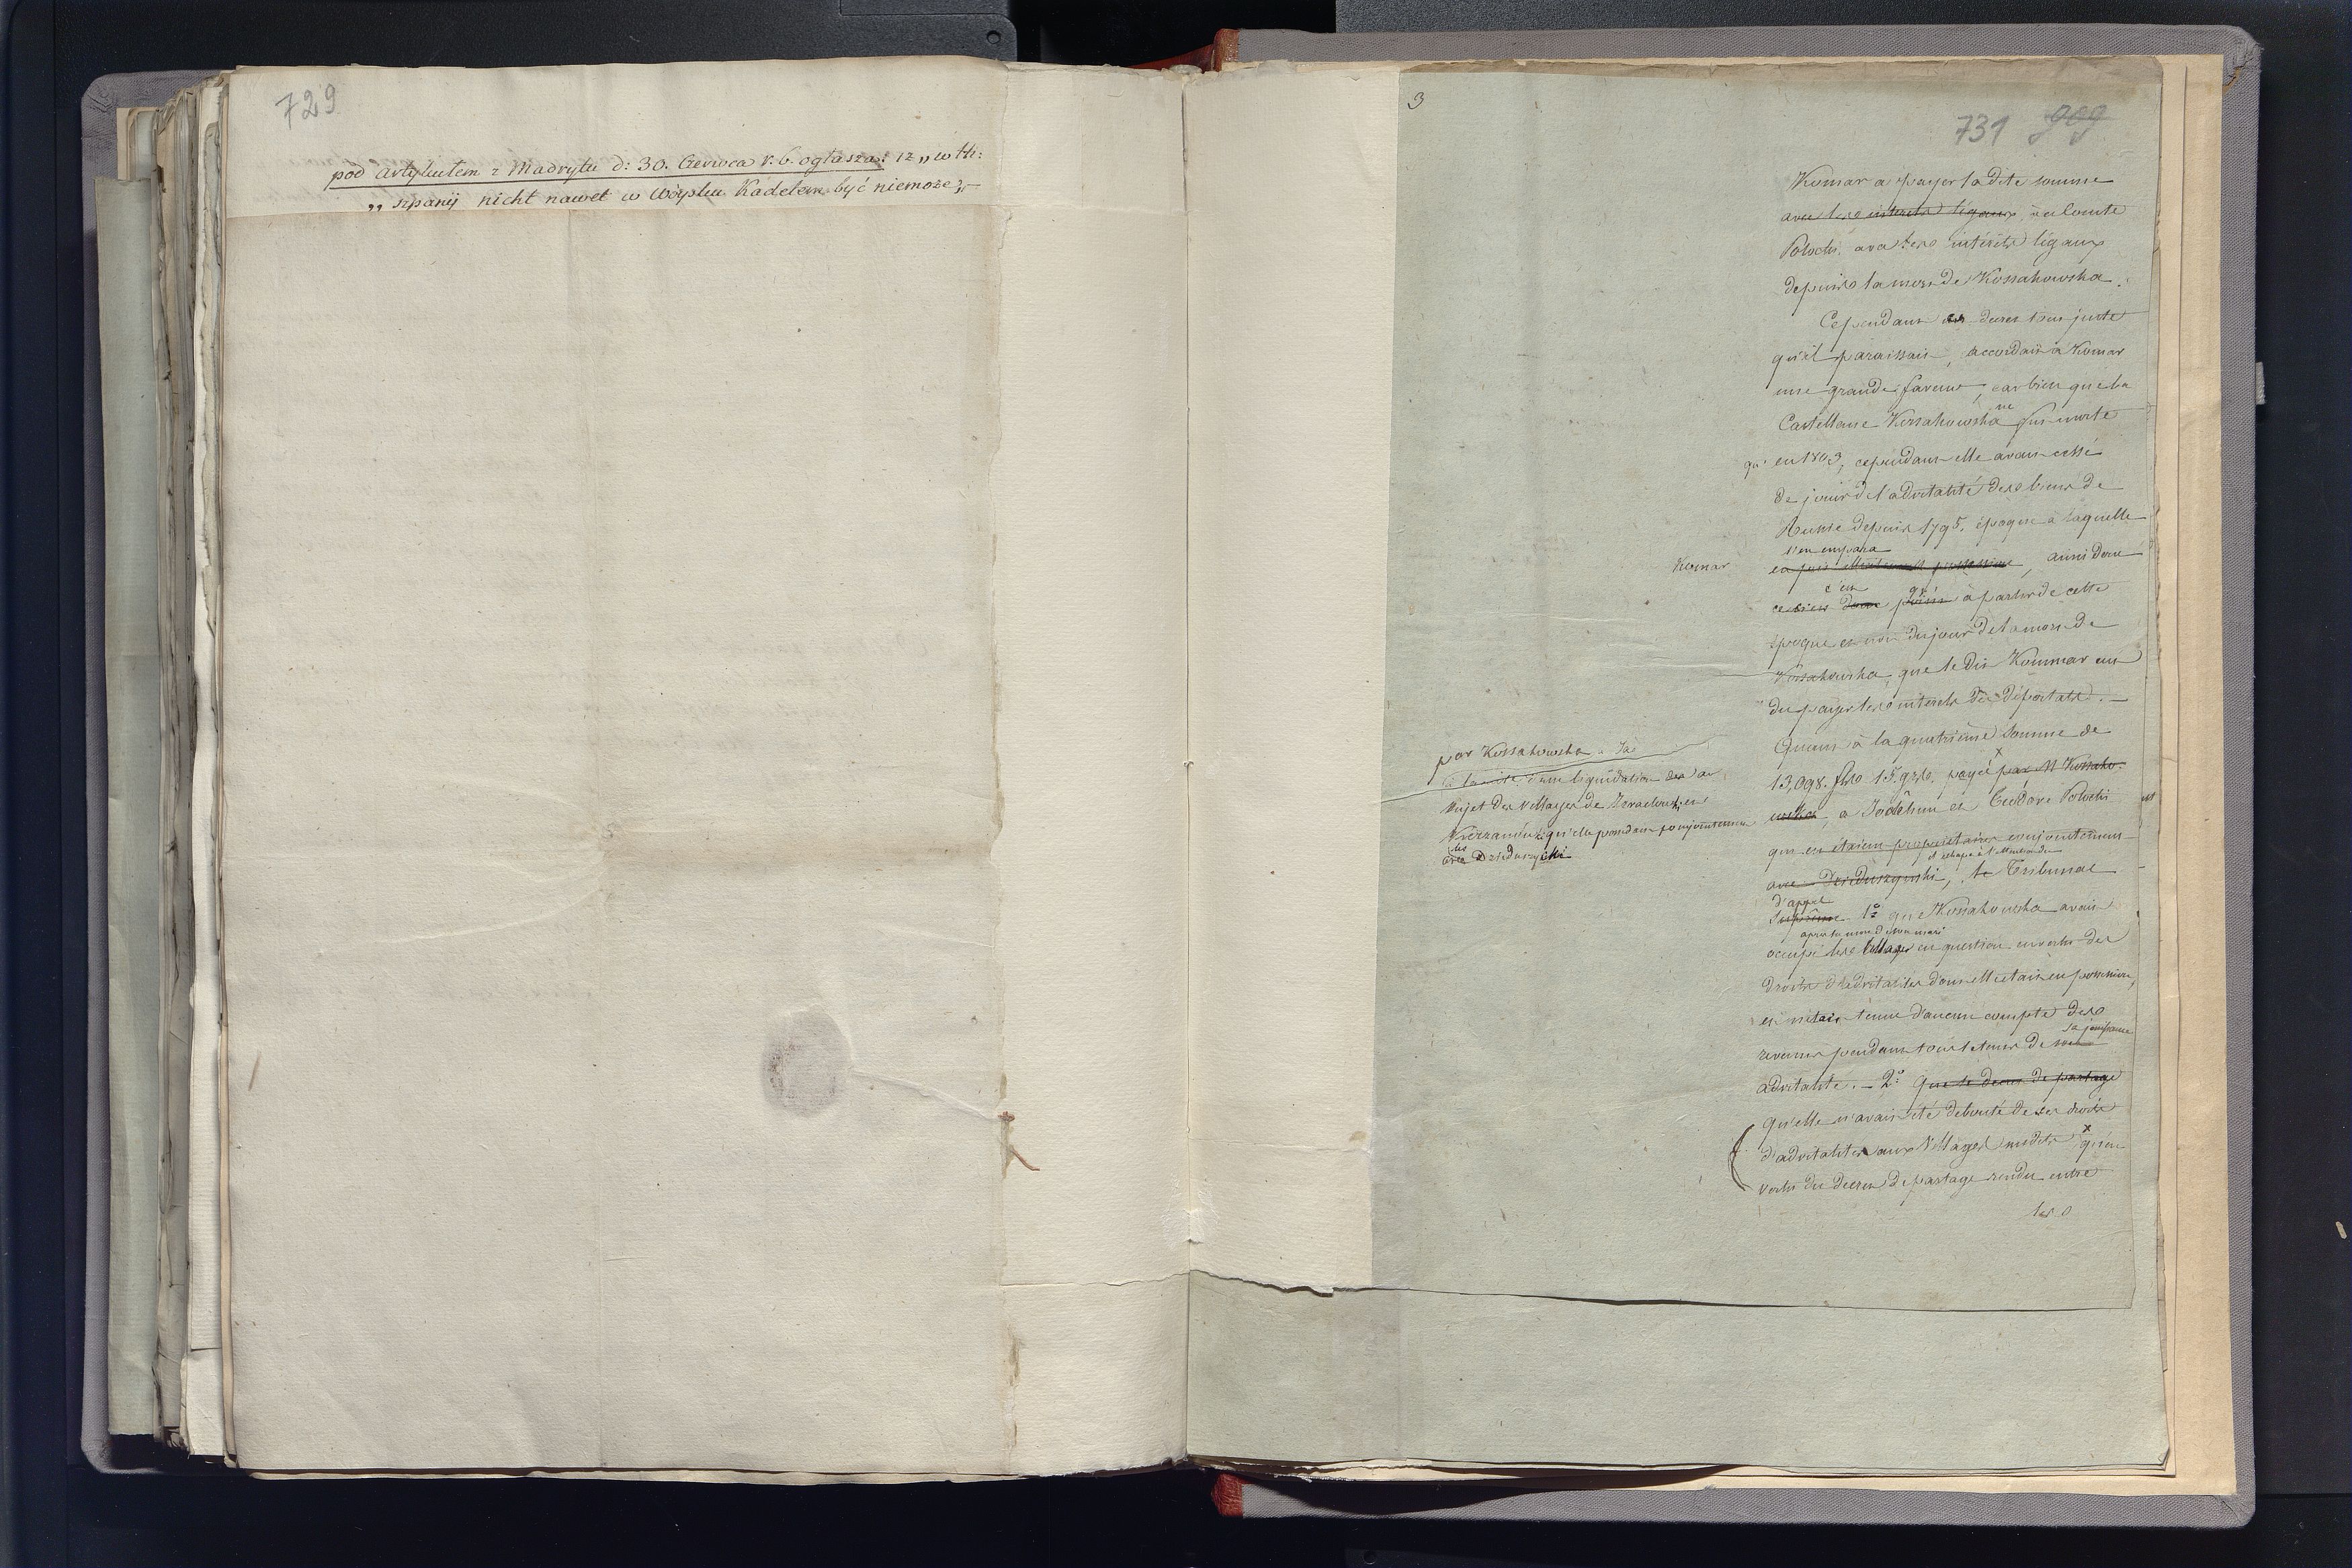 729
pod artykułem z Madrytu d: 30. Czerwca r. b. ogłasza: iż „w Hi:
„ szpanij nicht nawet w Woysku Kadetem być niemoże;, —
3
731 909
Komar a payer la dite somme
avec les interets légaux, au Comte
Potocki, avec les intérêts légaux
depuis la mort de Kossakowska.
Cependant ce decret tout juste
qu'il paraissait, accordait à Komar
une grande faveur, car bien que la
Castellane Kossakowska ne fut morte
qu' en 1803, cependant elle avait cessé
de jouir de l'advitalité des biens de
Russie depuis 1795. époque à laquelle
Komar s'en empara, ainsi donc
c'est qu' à partir de cette
époque et non du jour de la mort de
Kossakowska, que le dit Kommar eut
du payer les interets des dépostats. —
Quant à la quatrième somme de
13,098. fls 15. gros, payée x par M Kossako-
wska, a Joachim et Teodore Potocki
qui en étaient proprietaires conjointement
avec Dzieduszycki, le Tribunal
d'appel
Suprême 1º que Kossakowska avait
après la mort de son mari
occupé les villages en question en vertu des
droits d'advitalités dont elle était en possession,
et n'etait tenue d'aucun compte des
sa jouissance
revenus pendant tout le tems de son
advitalité. — 2º: Que le decret de partage
qu'elle n'avait été deboutée de ses droits
d'advitalités aux Villages susdits x qu'en
vertu du decret de partage rendu entre
les
par Kossakowska
à la suite d'une liquidation au
sujet des villages de
qu'elle possedait conjointement
avec les Dzieduszycki